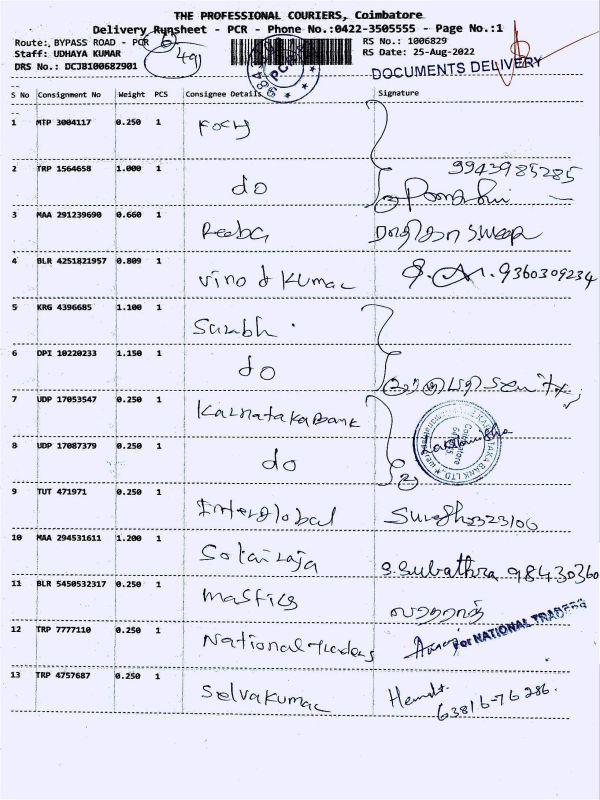 THE PROFESSIONAL COURIERS, Coimbatore
Delivery Runsheet - PCR - Phone No.:0422-3505555 - Page No.:1
Route: BYPASS ROAD - PCR
Staff: UDHAYA KUMAR
DRS No.: DCJB100682901
RS No.: 1006829
RS Date: 25-Aug-2022
DOCUMENTS DELIVERY
S No Consignment No Weight PCS Consignee Details Signature
1 MTP 3004117 0.250 1
2 TRP 1564658 1.000 1 do 9943985285
3 MAA 291239690 0.660 1 Reeba
4 BLR 4251821957 0.809 1 Vinod Kumar 9360309234
5 KRG 4396685 1.100 1
6 DPI 10220233 1.150 1 do
7 UDP 17053547 0.250 1 Karnataka Bank
8 UDP 17087379 0.250 1 do
9 TUT 471971 0.250 1 Interglobal
10 MAA 294531611 1.200 1 Solairaja S.Subathra 98430360
11 BLR 5450532317 0.250 1
12 TRP 7777110 0.250 1 National Traders For NATIONAL TRADERS
13 TRP 4757687 0.250 1 Selvakumar 63816-76286.